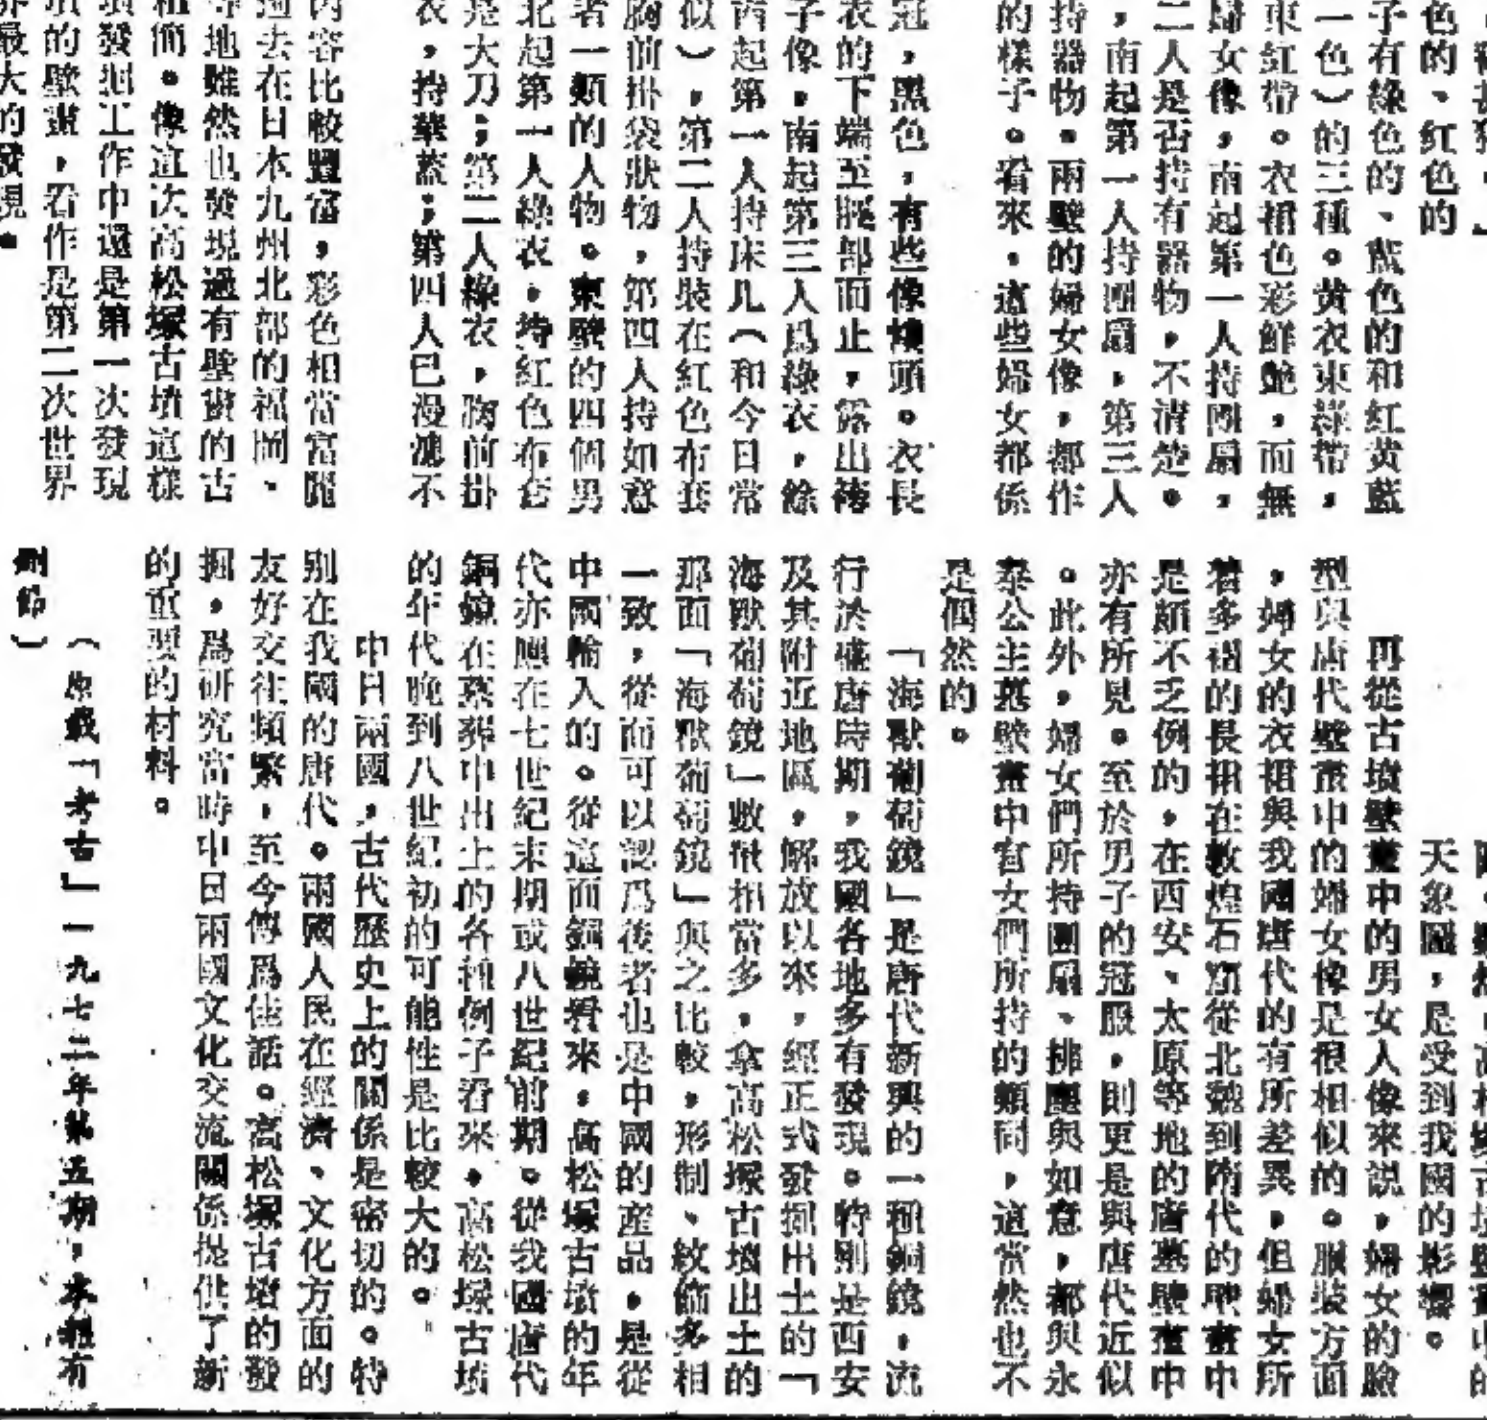 色的、红色的
子有綠色的、藍色的和红黄藍
一色）的三種。黄衣束綠帶，
束紅帶。衣裙色彩鮮艷，而無
婦女像，南起第一人持團扇，
二人是否持有器物，不清楚。
，南起第一人持團扇，第三人
持器物。兩壁的婦女像，都作
的樣子。看來，這些婦女都係
冠，黑色，有些像幞頭。衣長
衣的下端至腿部而止，露出袴
子像，南起第三人爲綠衣，餘
西起第一人持床几（和今日常
似），第二人持裝在紅色布套
胸前掛袋狀物，第四人持如意
者一類的人物。東壁的四個男
北起第一人綠衣，持紅色布套
是大刀；第二人綠衣，胸前掛
衣，持華蓋；第四人已漫漶不
內容比較豐富，彩色相當富麗
過去在日本九州北部的福岡、
等地雖然也發現過有壁畫的古
粗簡。像這次高松塚古墳這樣
墳發掘工作中還是第一次發現
墳的壁畫，看作是第二次世界
界最大的發現。
天象圖，是受到我國的影響。
再從古墳壁畫中的男女人像來説，婦女的臉
型與唐代壁畫中的婦女像是很相似的。服裝方面
，婦女的衣裙與我國唐代的有所差異，但婦女所
着多褶的長裙在敦煌石窟從北魏到隋代的壁畫中
是頗不乏例的，在西安、太原等地的唐墓壁畫中
亦有所見。至於男子的冠服，則更是與唐代近似
。此外，婦女們所持團扇、拂塵與如意，都與永
泰公主墓壁畫中官女們所持的類同，這當然也不
是偶然的。
「海獸葡萄鏡」是唐代新興的一種銅鏡，流
行於盛唐時期，我國各地多有發現。特別是西安
及其附近地區，解放以來，經正式發掘出土的「
海獸葡萄鏡」數量相當多，拿高松塚古墳出土的
那面「海獸葡萄鏡」與之比較，形制、紋飾多相
一致，從而可以認爲後者也是中國的産品，是從
中國輸入的。從這面銅鏡看來，高松塚古墳的年
代亦應在七世紀末期或八世紀前期。從我國唐代
銅鏡在墓葬中出土的各種例子看來，高松塚古墳
的年代晚到八世紀初的可能性是比較大的。
中日兩國，古代歷史上的關係是密切的。特
別在我國的唐代。兩國人民在經濟、文化方面的
友好交往頻繁，至今傳爲佳話。高松塚古墳的發
掘，爲研究當時中日兩國文化交流關係提供了新
的重要的材料。
（原載「考古」一九七二年第五期，本報有
刪節）